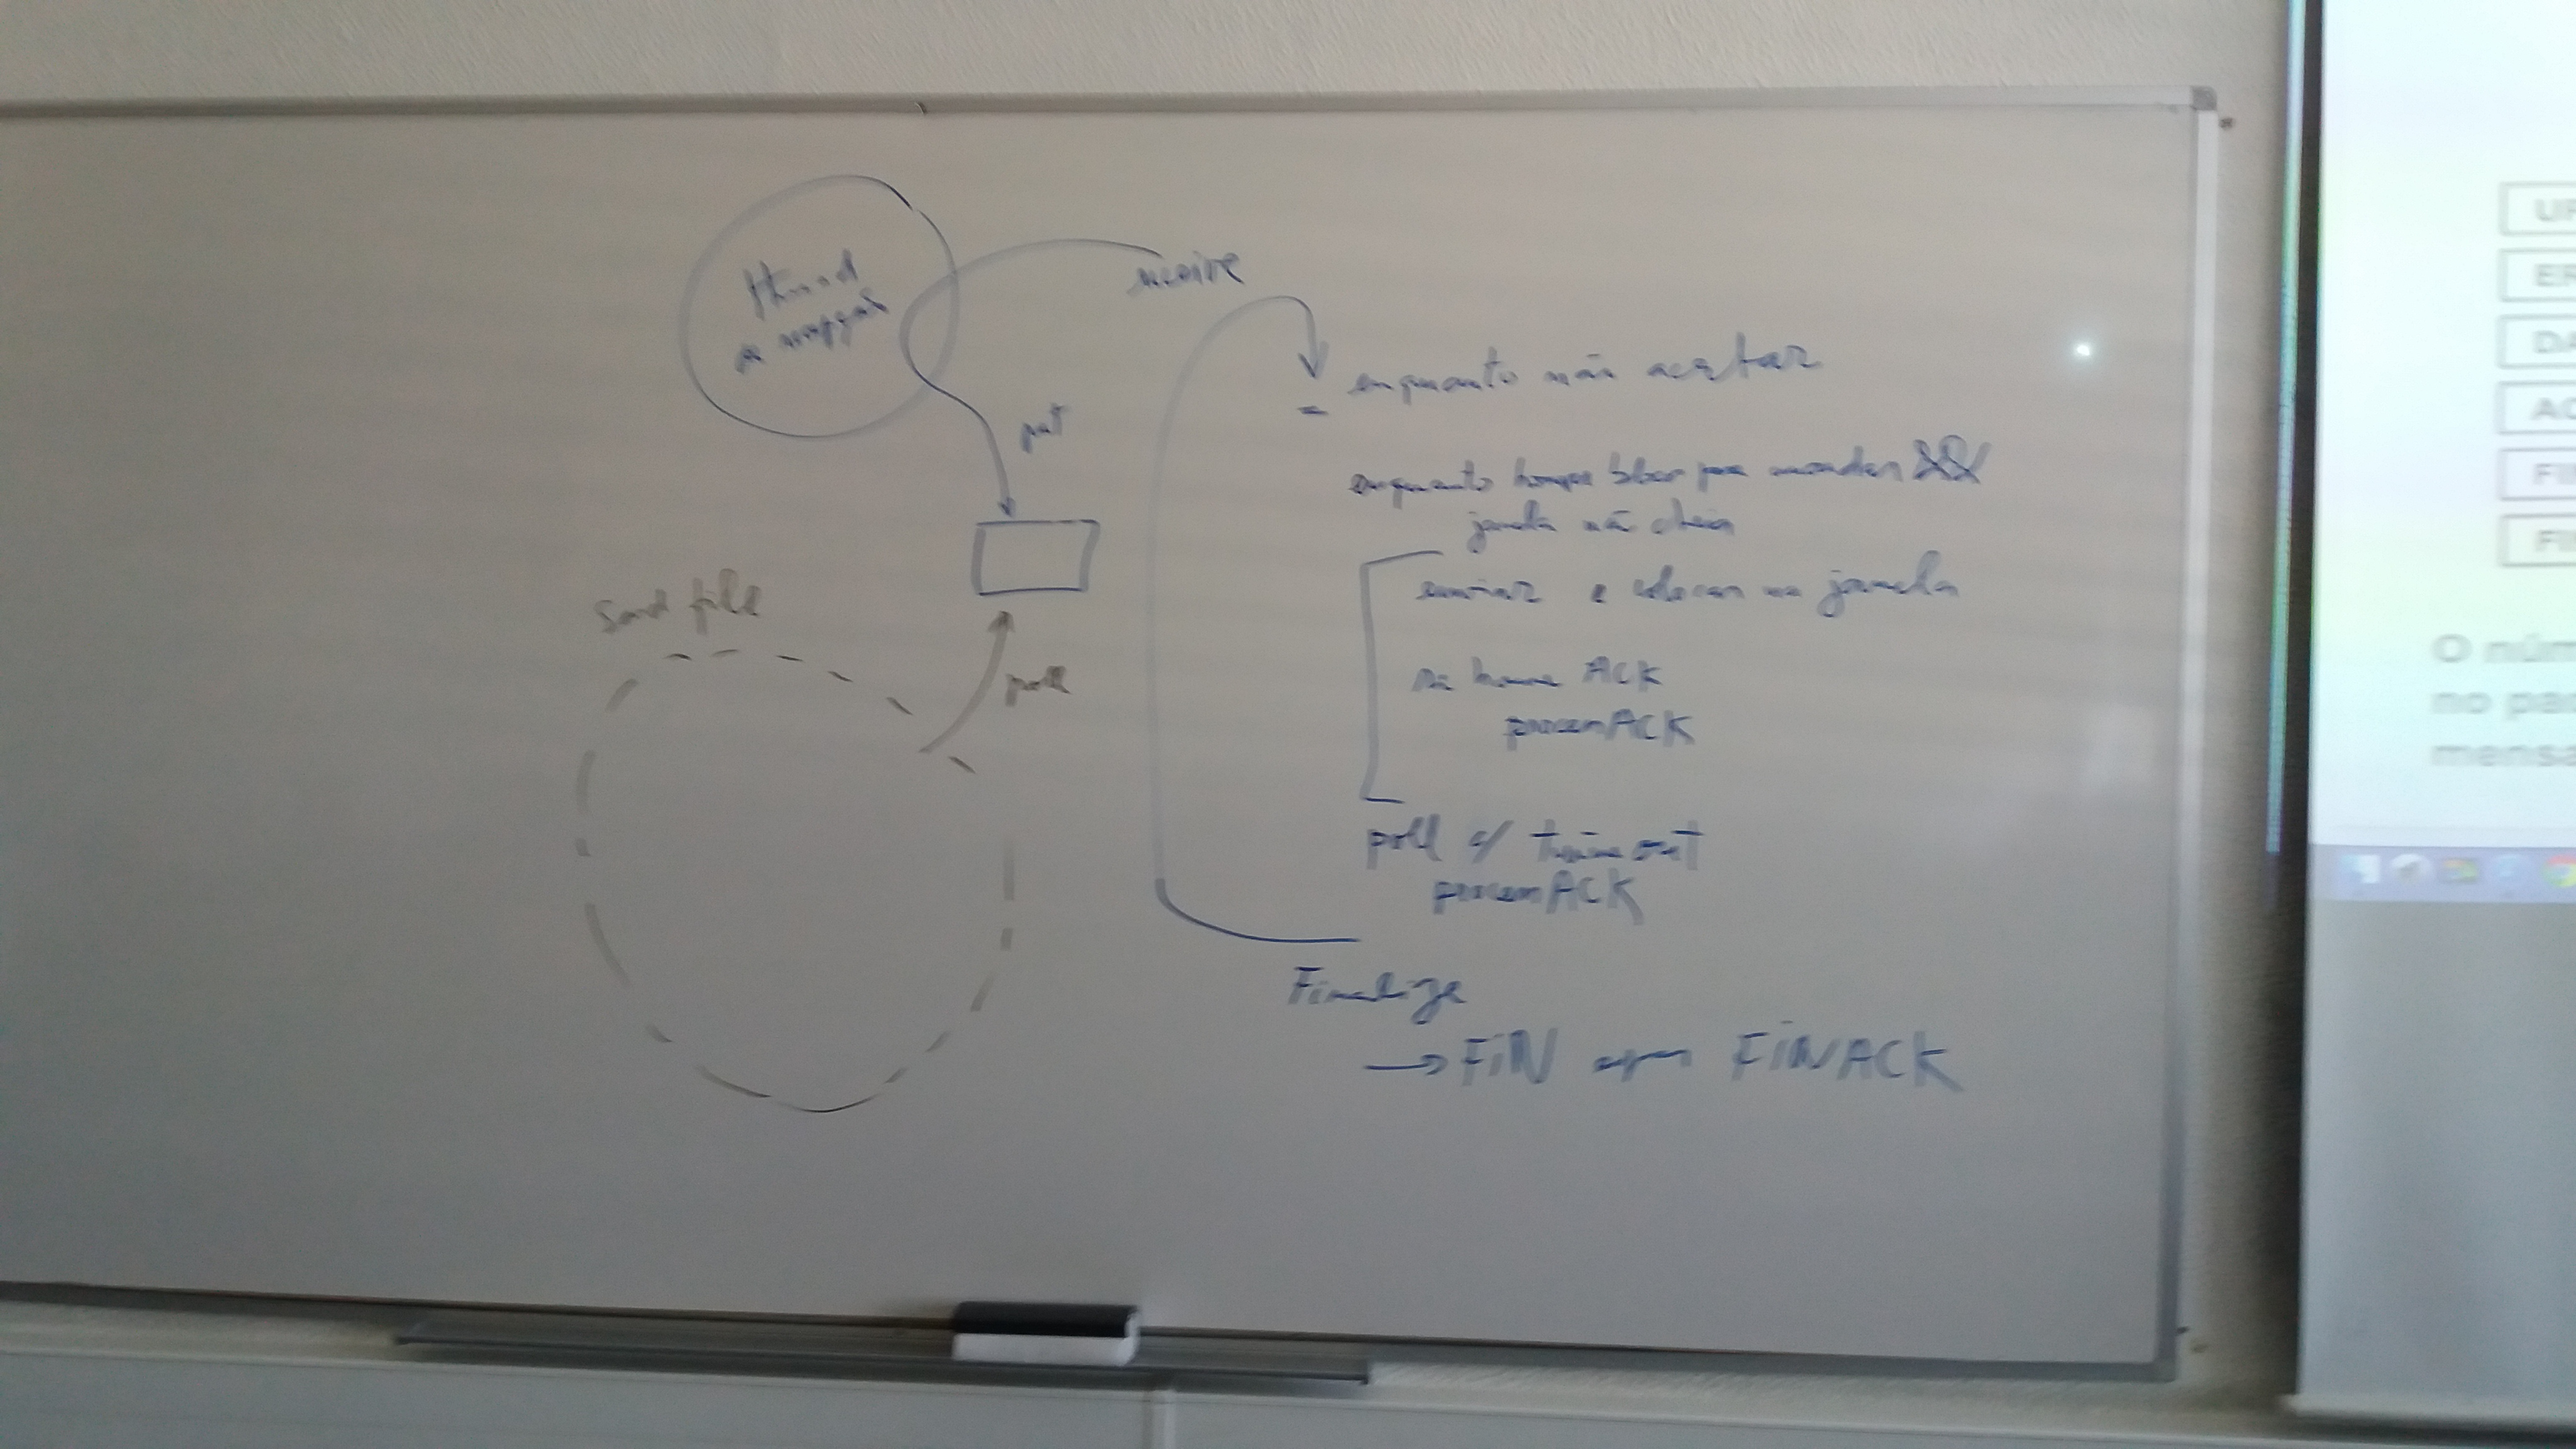 thread
de recepção
receive
put
send file
poll
enquanto não acabar
enquanto houver blocos para mandar &&
janela não cheia
enviar e colocar na janela
se houver ACK
processa ACK
poll c/ timeout
processa ACK
Finalize
→ FIN espera FINACK
UP
DA
AC
FI
FI
O núm
no pa
mensa